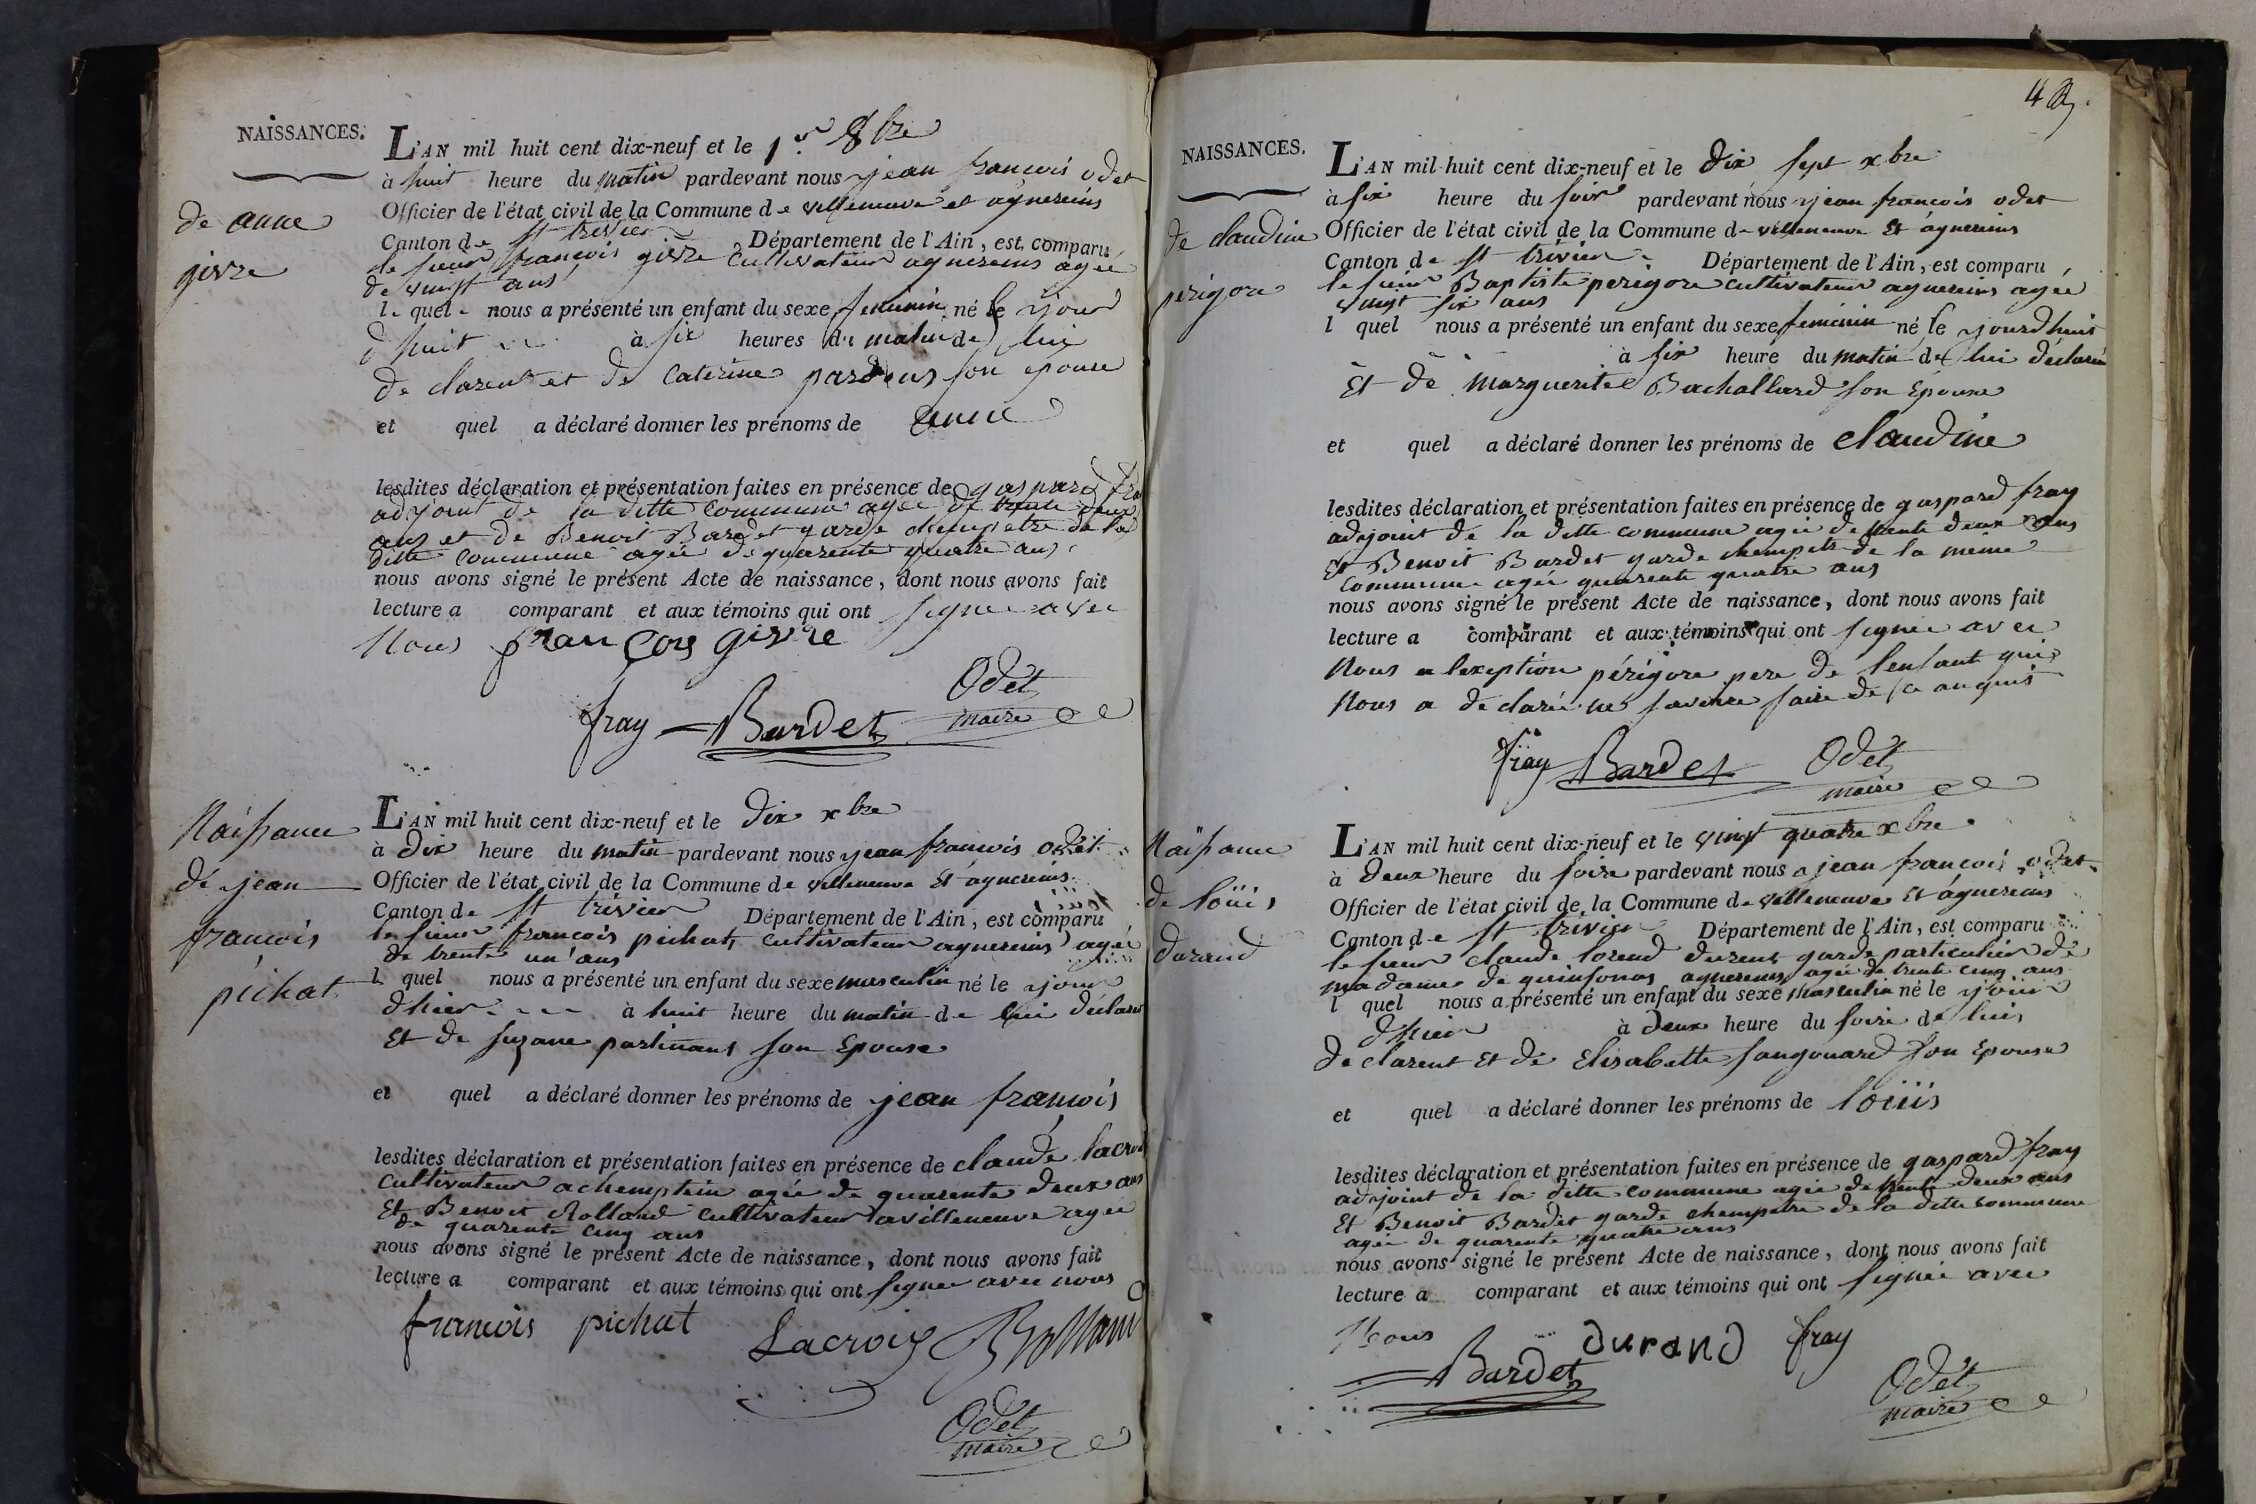 NAISSANCES.
de anne
givre
L'AN mil huit cent dix-neuf et le 1er 8bre
à huit heure du matin pardevant nous jean francois odet
Officier de l'état civil de la Commune de villeneuve et agnereins
Canton de st trivier Département de l'Ain, est comparu
le sieur françois givre cultivateur agnereins agée
de vingt ans
le quel nous a présenté un enfant du sexe feminin né le jour
d'huit à six heures du matin de lui
de clarent et de caterine pardeus son epouse
et quel a déclaré donner les prénoms de anne
lesdites déclaration et présentation faites en présence de gaspard fra
adjoint de la ditte commune agée de trente deux
ans et de Benoit Bardet garde chempetre de la
ditte commune agée de quarente quatre ans
nous avons signé le présent Acte de naissance, dont nous avons fait
lecture a comparant et aux témoins qui ont signee avec
Nous françois givre
fray Bardet Odet
maire
Naissance
de jean
francois
pichat
L'AN mil huit cent dix-neuf et le dix xbre
à dix heure du matin pardevant nous jean francois odet
Officier de l'état civil de la Commune de villeneuve Et agnereins
Canton de st trivier Département de l'Ain, est comparu
le sieur francois pichat cultivateur agnereins agée
de trente un ans
l quel nous a présenté un enfant du sexe masculin né le jour
d'hier à huit heure du matin de lui déclarent
Et de suzane partinant son Epouse
et quel a déclaré donner les prénoms de jean francois
lesdites déclaration et présentation faites en présence de claude lacroix
cultivateur a chemptein agée de quarente deux ans
Et Benoit Rolland cultivateur a villeneuve agée
de quarente cinq ans
nous avons signé le présent Acte de naissance, dont nous avons fait
lecture a comparant et aux témoins qui ont signee avec nous
francois pichat Lacroix Rolland
Odet
maire
NAISSANCES.
de claudine
perigore
L'AN mil huit cent dix-neuf et le dix sept xbre
à six heure du soir pardevant nous jean francois odet
Officier de l'état civil de la Commune de villeneuve Et agnereins
Canton de st trivier Département de l'Ain, est comparu
le sieur Baptiste perigore cultivateur agnereins agée
vingt six ans
l quel nous a présenté un enfant du sexe feminin né le jourdhuit
à six heure du matin de lui déclarent
Et de Marguerite Bachallard son Epouse
et quel a déclaré donner les prénoms de claudine
lesdites déclaration et présentation faites en présence de gaspard fray
adjoint de la ditte commune agée de trente deux ans
Et Benoit Bardet garde chempetre de la meme
commune agée quarente quatre ans
nous avons signé le présent Acte de naissance, dont nous avons fait
lecture a comparant et aux témoins qui ont signée avec
Nous a lexeption périgore pere de lenfant qui
Nous a declaré ne savoire faire de ce anquis
fray Bardet Odet
maire
Naissance
de loüis
durand
L'AN mil huit cent dix-neuf et le vingt quatre xbre
à deux heure du soire pardevant nous jean francois odet
Officier de l'état civil de la Commune de villeneuve Et agnereins
Canton de st trivier Département de l'Ain, est comparu
le sieur claude lorend durent garde particulier de
madame de quinsonas agnereins agée de trente cinq ans
l quel nous a présenté un enfant du sexe masculin né le jour
d'hier à deux heure du soire de lui
de clarent Et de Elisabette sangouard son Epouse
et quel a déclaré donner les prénoms de loüis
lesdites déclaration et présentation faites en présence de gaspard fray
adjoint de la ditte commune agée de trente deux ans
Et Benoit Bardet garde chempetre de la ditte commune
agée de quarente quatre ans
nous avons signé le présent Acte de naissance, dont nous avons fait
lecture a comparant et aux témoins qui ont signée avec
Nous durand fray
Bardet Odet
maire